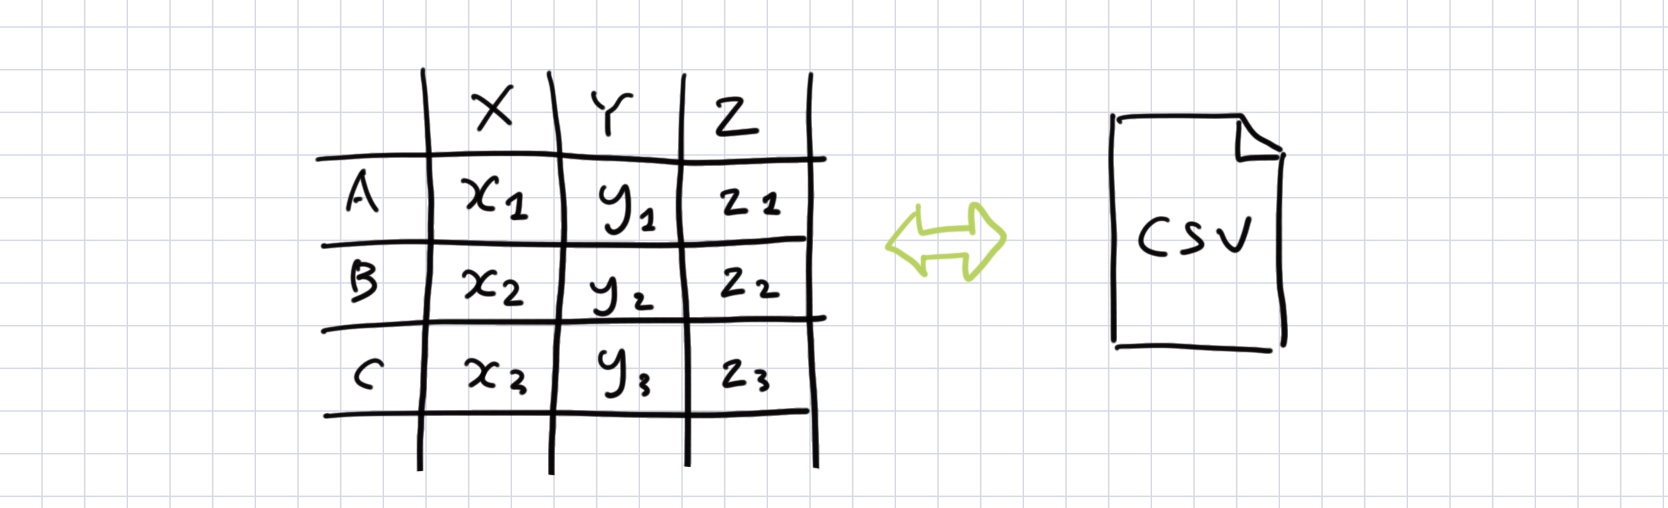 X Y Z
A x1 y1 z1
B x2 y2 z2
C x3 y3 z3
CSV